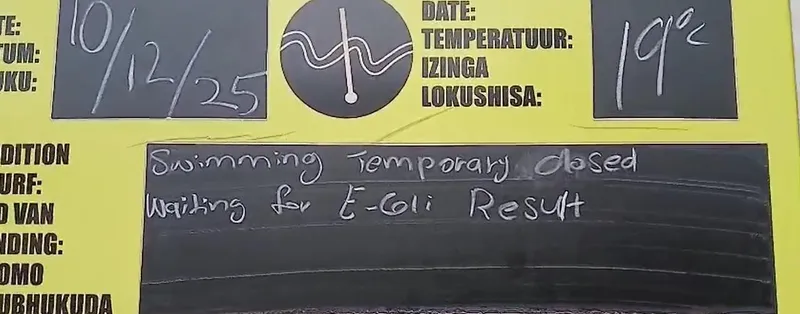 TE:
TUM:
UKU:
10/12/25
DATE:
TEMPERATUUR:
IZINGA
LOKUSHISA:
19°C
DITION
URF:
D VAN
NDING:
OMO
UBHUKUDA
Swimming Temporary closed
Waiting for E-Coli Result